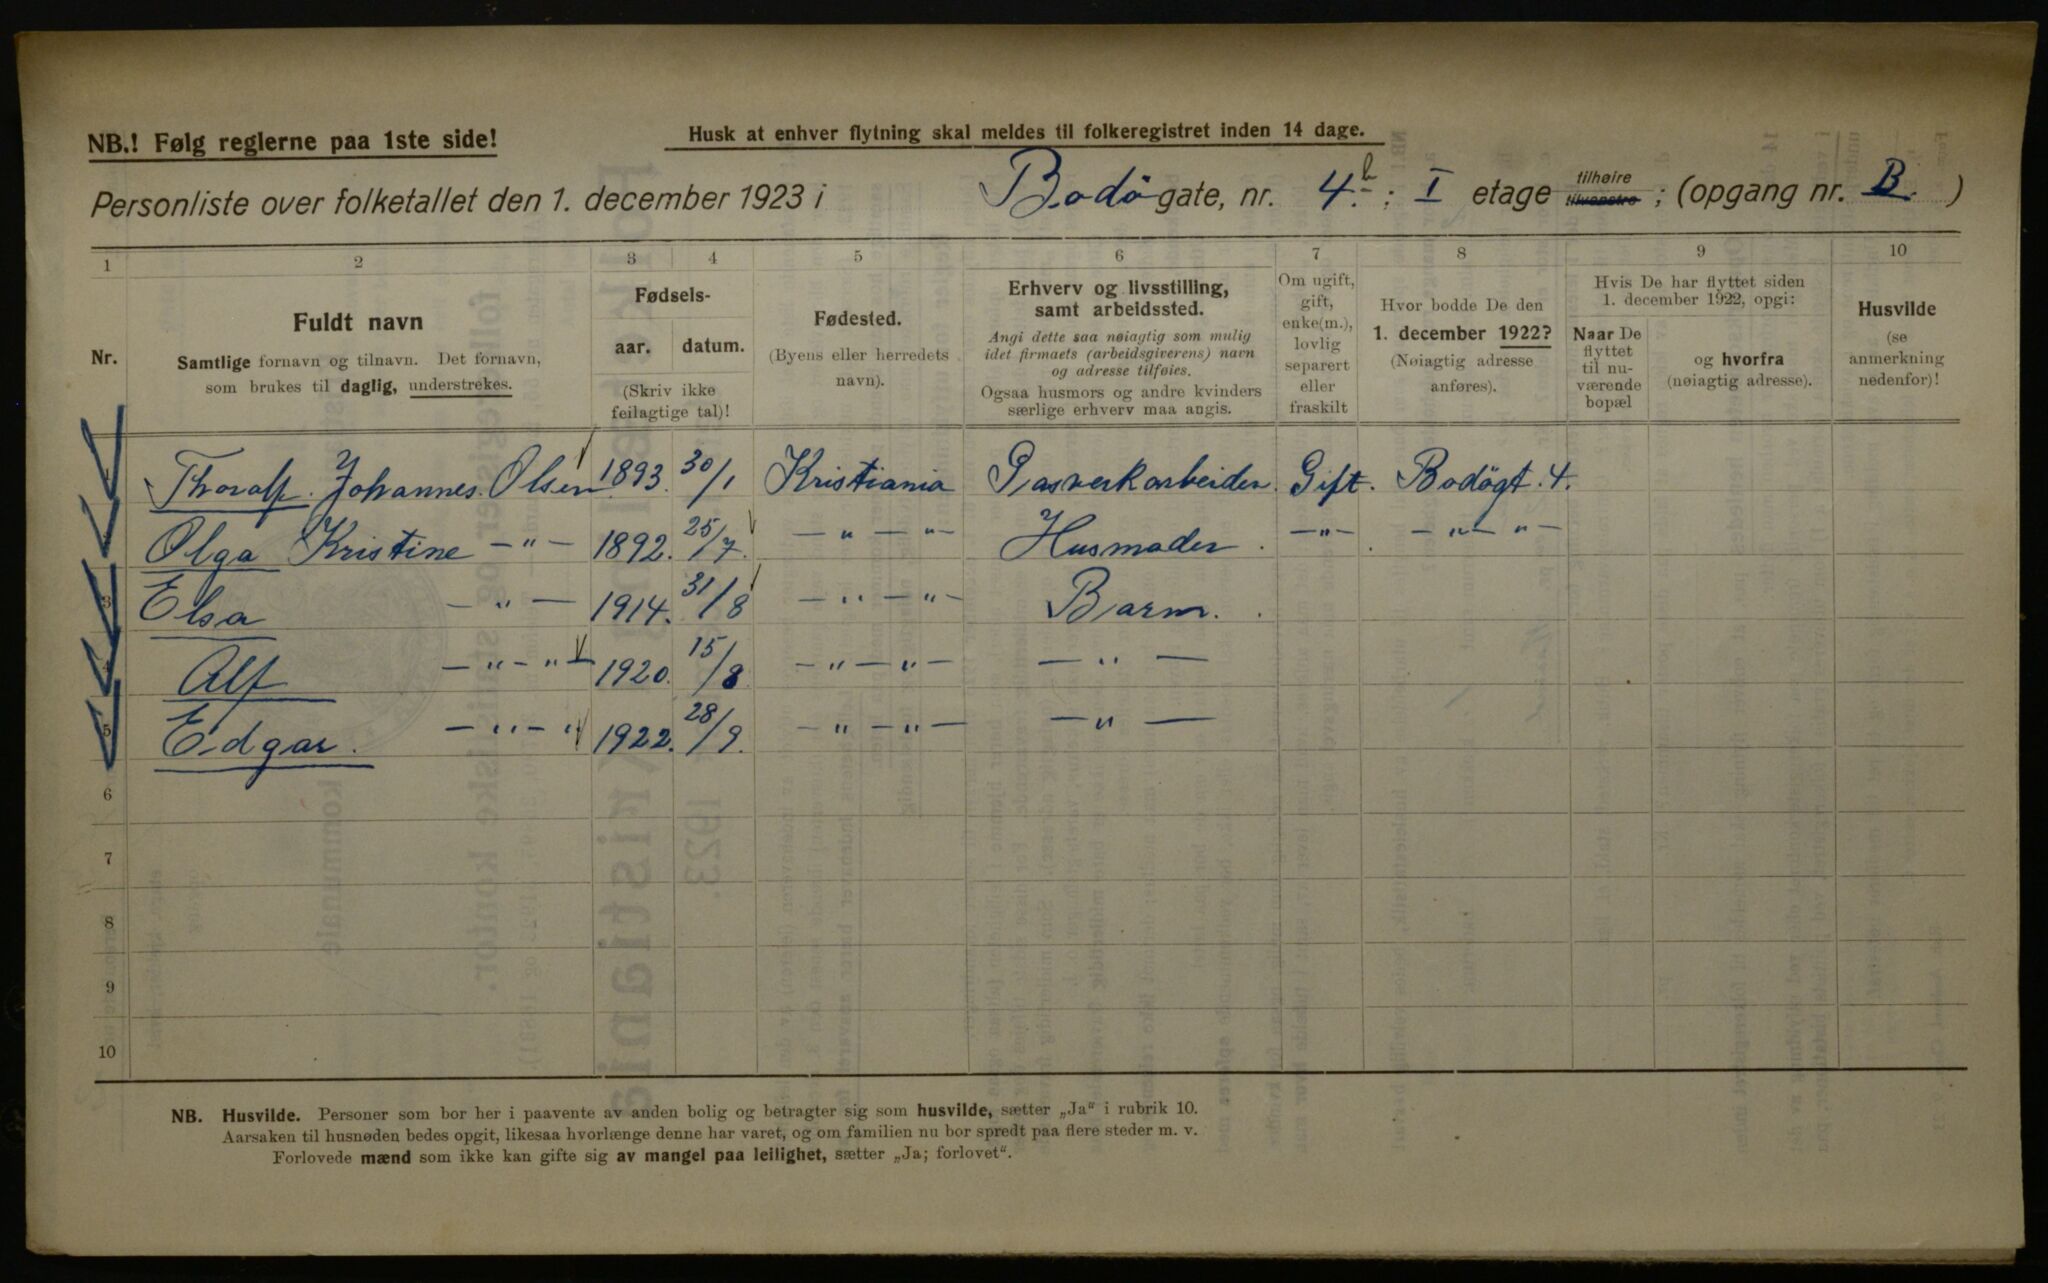 NB.! Følg reglerne paa 1ste side!
Husk at enhver flytning skal meldes til folkeregistret inden 14 dage.
Personliste over folketallet den 1. december 1923 i Bodø gate, nr. 4 b.; I etage tilhøire tilvenstre ; (opgang nr. B. )
1 2 3 4 5 6 7 8 9 10
Nr.
Fuldt navn
Samtlige fornavn og tilnavn. Det fornavn,
som brukes til daglig, understrekes.
Fødsels-
aar. datum.
(Skriv ikke
feilagtige tal)!
Fødested.
(Byens eller herredets
navn).
Erhverv og livsstilling,
samt arbeidssted.
Angi dette saa nøiagtig som mulig
idet firmaets (arbeidsgiverens) navn
og adresse tilføies.
Ogsaa husmors og andre kvinders
særlige erhverv maa angis.
Om ugift,
gift,
enke(m.),
lovlig
separert
eller
fraskilt
Hvor bodde De den
1. december 1922?
(Nøiagtig adresse
anføres).
Hvis De har flyttet siden
1. december 1922, opgi:
Naar De
flyttet
til nu-
værende
bopæl
og hvorfra
(nøiagtig adresse).
Husvilde
(se
anmerkning
nedenfor)!
1 Thoralf. Johannes. Olsen 1893. 30/1 Kristiania Gasverkarbeider. Gift. Bodøgt. 4.
2 Olga Kristine — " — 1892. 25/7. — " — " — Husmoder. — " — — " — " —
3 Elsa — " — 1914. 31/8 — " — " — Barn.
4 Alf — " — " — 1920. 15/8. — " — " — — " —
5 Edgar. — " — " 1922. 28/9. — " — " — — " —
6
7
8
9
10
NB. Husvilde. Personer som bor her i paavente av anden bolig og betragter sig som husvilde, sætter „Ja“ i rubrik 10.
Aarsaken til husnøden bedes opgit, likesaa hvorlænge denne har varet, og om familien nu bor spredt paa flere steder m. v.
Forlovede mænd som ikke kan gifte sig av mangel paa leilighet, sætter „Ja; forlovet“.